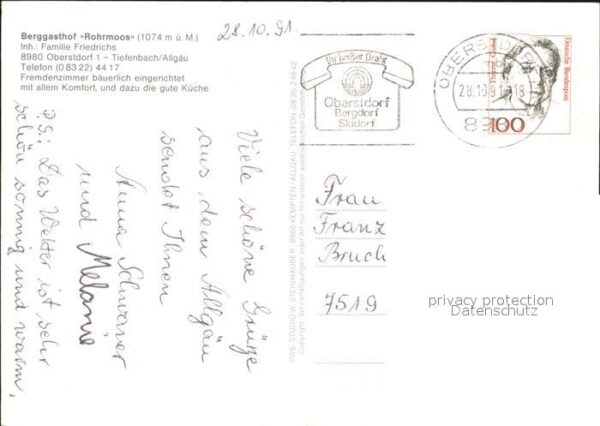 Berggasthof "Rohrmoos" (1074 m ü. M.)
Inh.: Familie Friedrichs
8980 Oberstdorf 1 – Tiefenbach/Allgäu
Telefon (0 83 22) 44 17
Fremdenzimmer bäuerlich eingerichtet
mit allem Komfort, und dazu die gute Küche
28.10.91.
Viele schöne Grüße
aus dem Allgäu
sendet Ihnen
Anna Schwarzer
und Melanie
P.S.: Das Wetter ist sehr
schön sonnig und warm.
Ihr heißer Draht
Oberstdorf
Bergdorf
Skidorf
OBERSTDORF
28.10.91.18
Deutsche Bundespost
100
Frau
Franz
Bruch
7519
privacy protection
Datenschutz